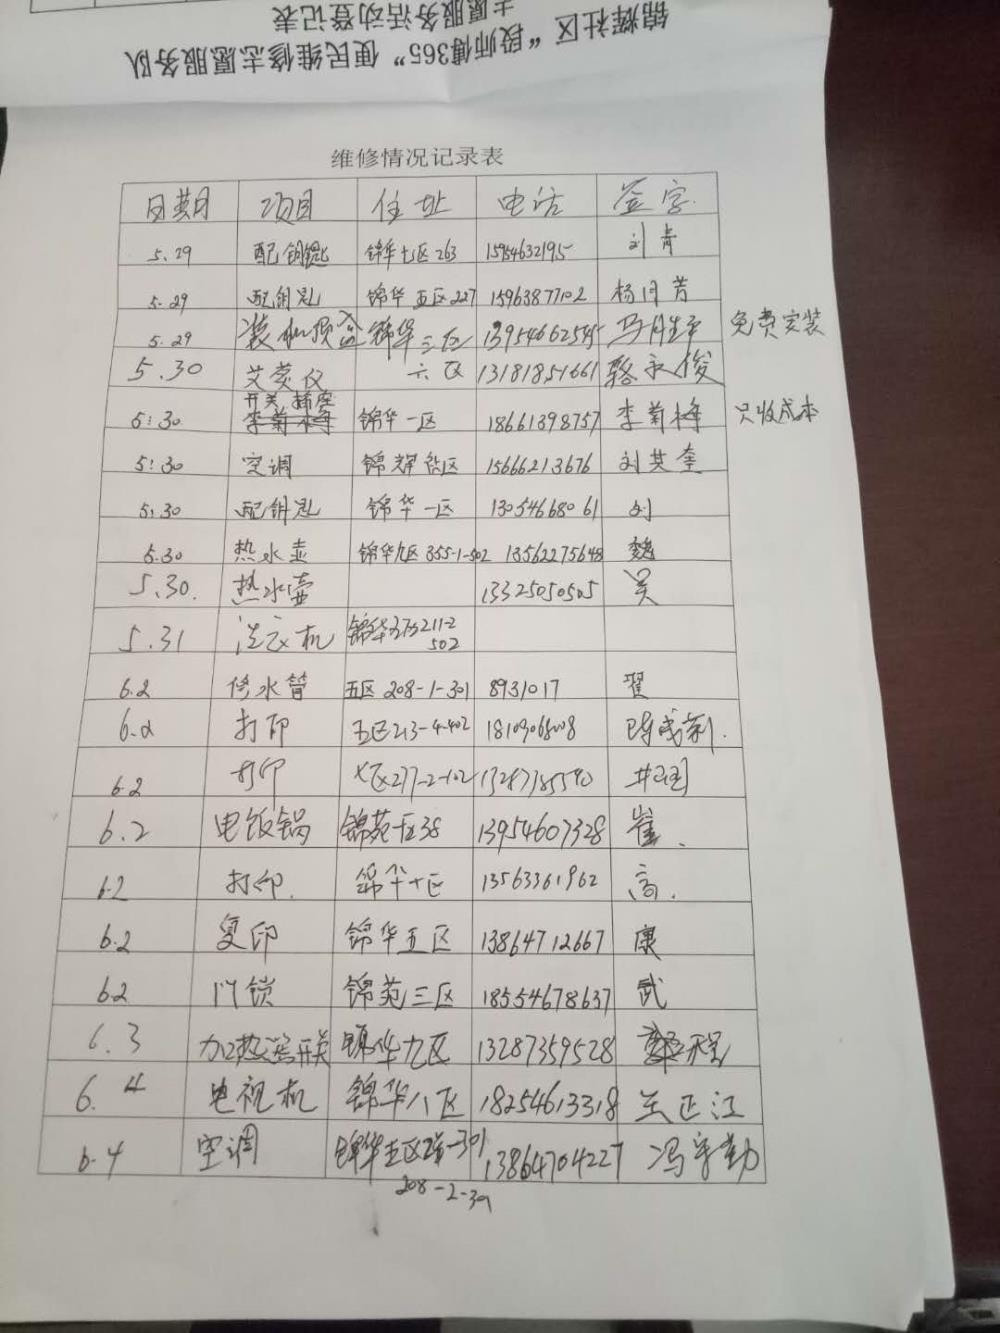 锦辉社区“段师傅365”便民维修志愿服务队
志愿服务活动登记表
维修情况记录表
日期 项目 住址 电话 签字
5.29 配钥匙 锦华七区263 15954632195 刘青
5.29 配钥匙 锦华五区227 15963877102 杨月芳
5.29 锦华三区 13954662545 免费安装
5.30 艾灸仪 六区 13181851661 骆永俊
开关插座
5:30 李菊梅 锦华一区 18661398757 李菊梅 只收成本
5:30 空调 锦辉社区 15666213676 刘其奎
5.30 配钥匙 锦华一区 13054668061 刘
5.30 热水壶 锦华九区355-1-502 13562275648 魏
5.30. 热水壶 13325050505 吴
5.31 洗衣机 锦华 211-2
502
6.2 修水管 五区208-1-301 8931017 翟
6.2 打印 五区213-4-402 18109068008
6.2 打印 277-2-102 13287185590
6.2 电饭锅 锦苑 38 13954607328 崔.
6.2 打印. 锦华十区 13563361962 高.
6.2 复印 锦华五区 13864712667 康
6.2 门锁 锦苑三区 18554678637 武
6.3 加热器开关 锦华九区 13287359528 程
6.4 电视机 锦华八区 18254613318 兰正江
6.4 空调 锦华五区 -301 13864704227 冯宇勤
208-2-301